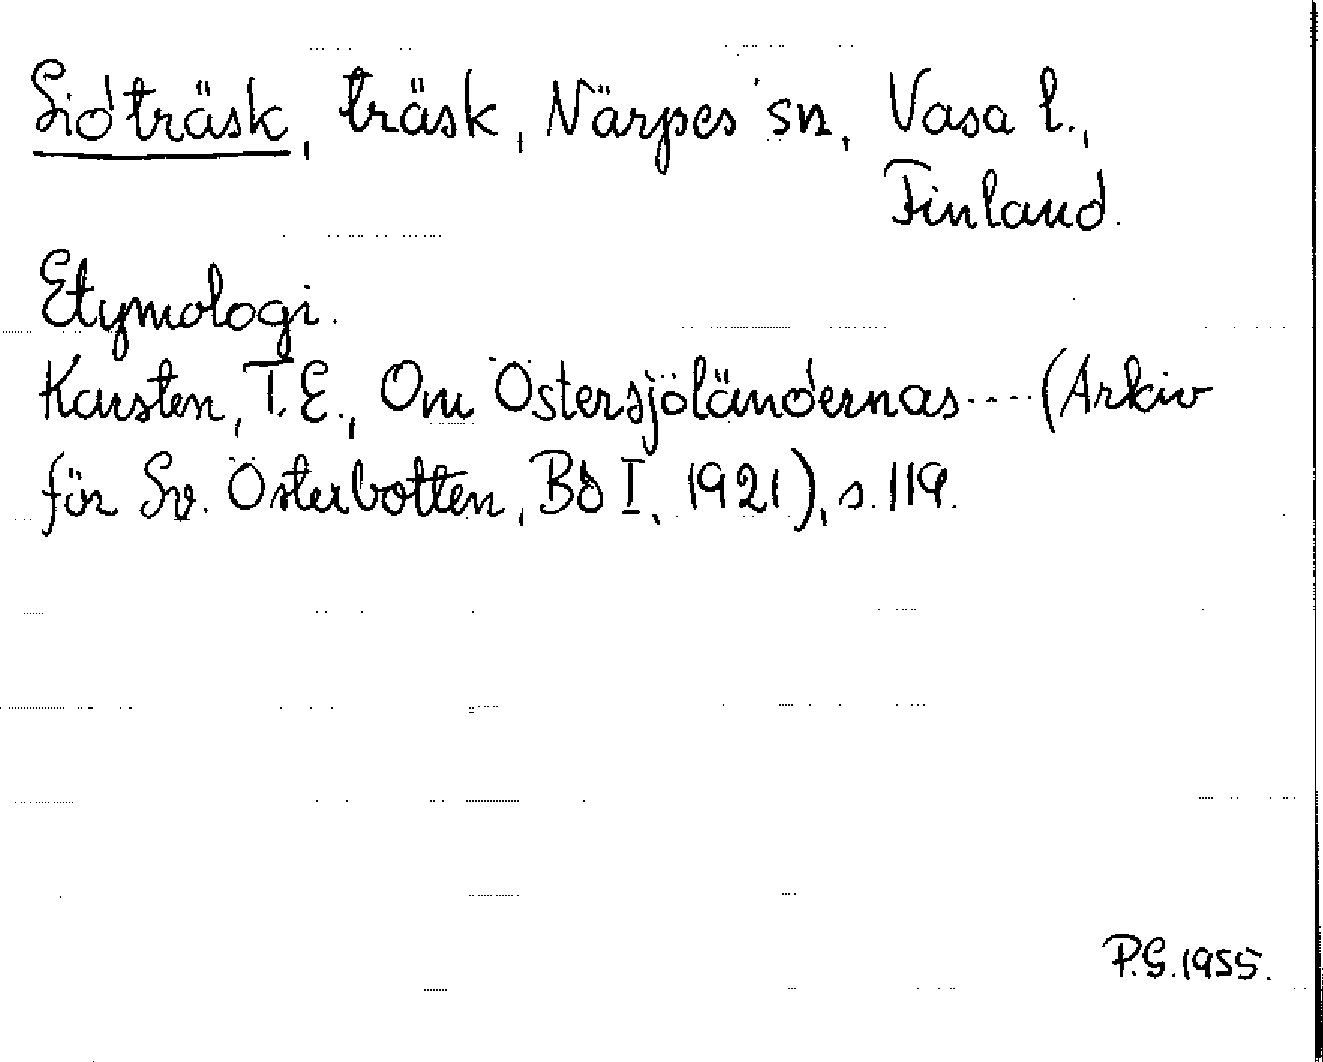 Lidträsk, träsk, Närpes sn, Vasa l.,
Finland.
Etymologi.
Karsten, T.E., Om Östersjöländernas---- (Arkiv
för Sv. Österbotten, Bd I, 1921), s. 119.
P.G. 1955.